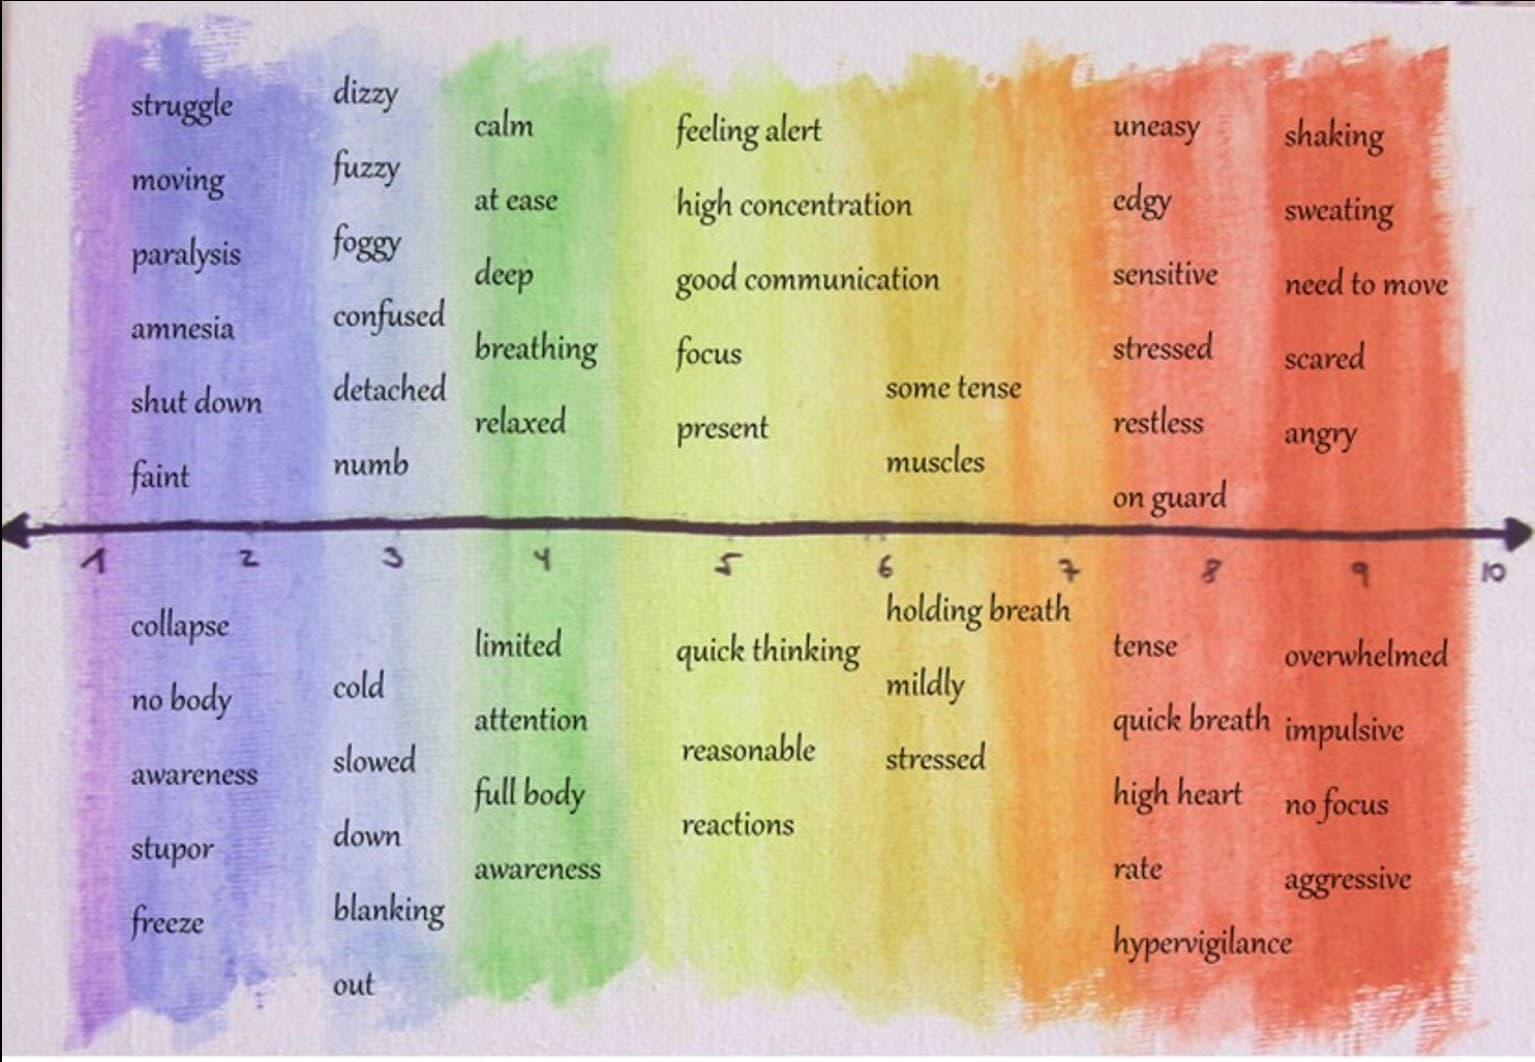 struggle
moving
paralysis
amnesia
shut down
faint
dizzy
fuzzy
foggy
confused
detached
numb
calm
at ease
deep
breathing
relaxed
feeling alert
high concentration
good communication
focus
present
some tense
muscles
uneasy
edgy
sensitive
stressed
restless
on guard
shaking
sweating
need to move
scared
angry
1 2 3 4 5 6 7 8 9 10
collapse
no body
awareness
stupor
freeze
cold
slowed
down
blanking
out
limited
attention
full body
awareness
quick thinking
reasonable
reactions
holding breath
mildly
stressed
tense
quick breath
high heart
rate
hypervigilance
overwhelmed
impulsive
no focus
aggressive